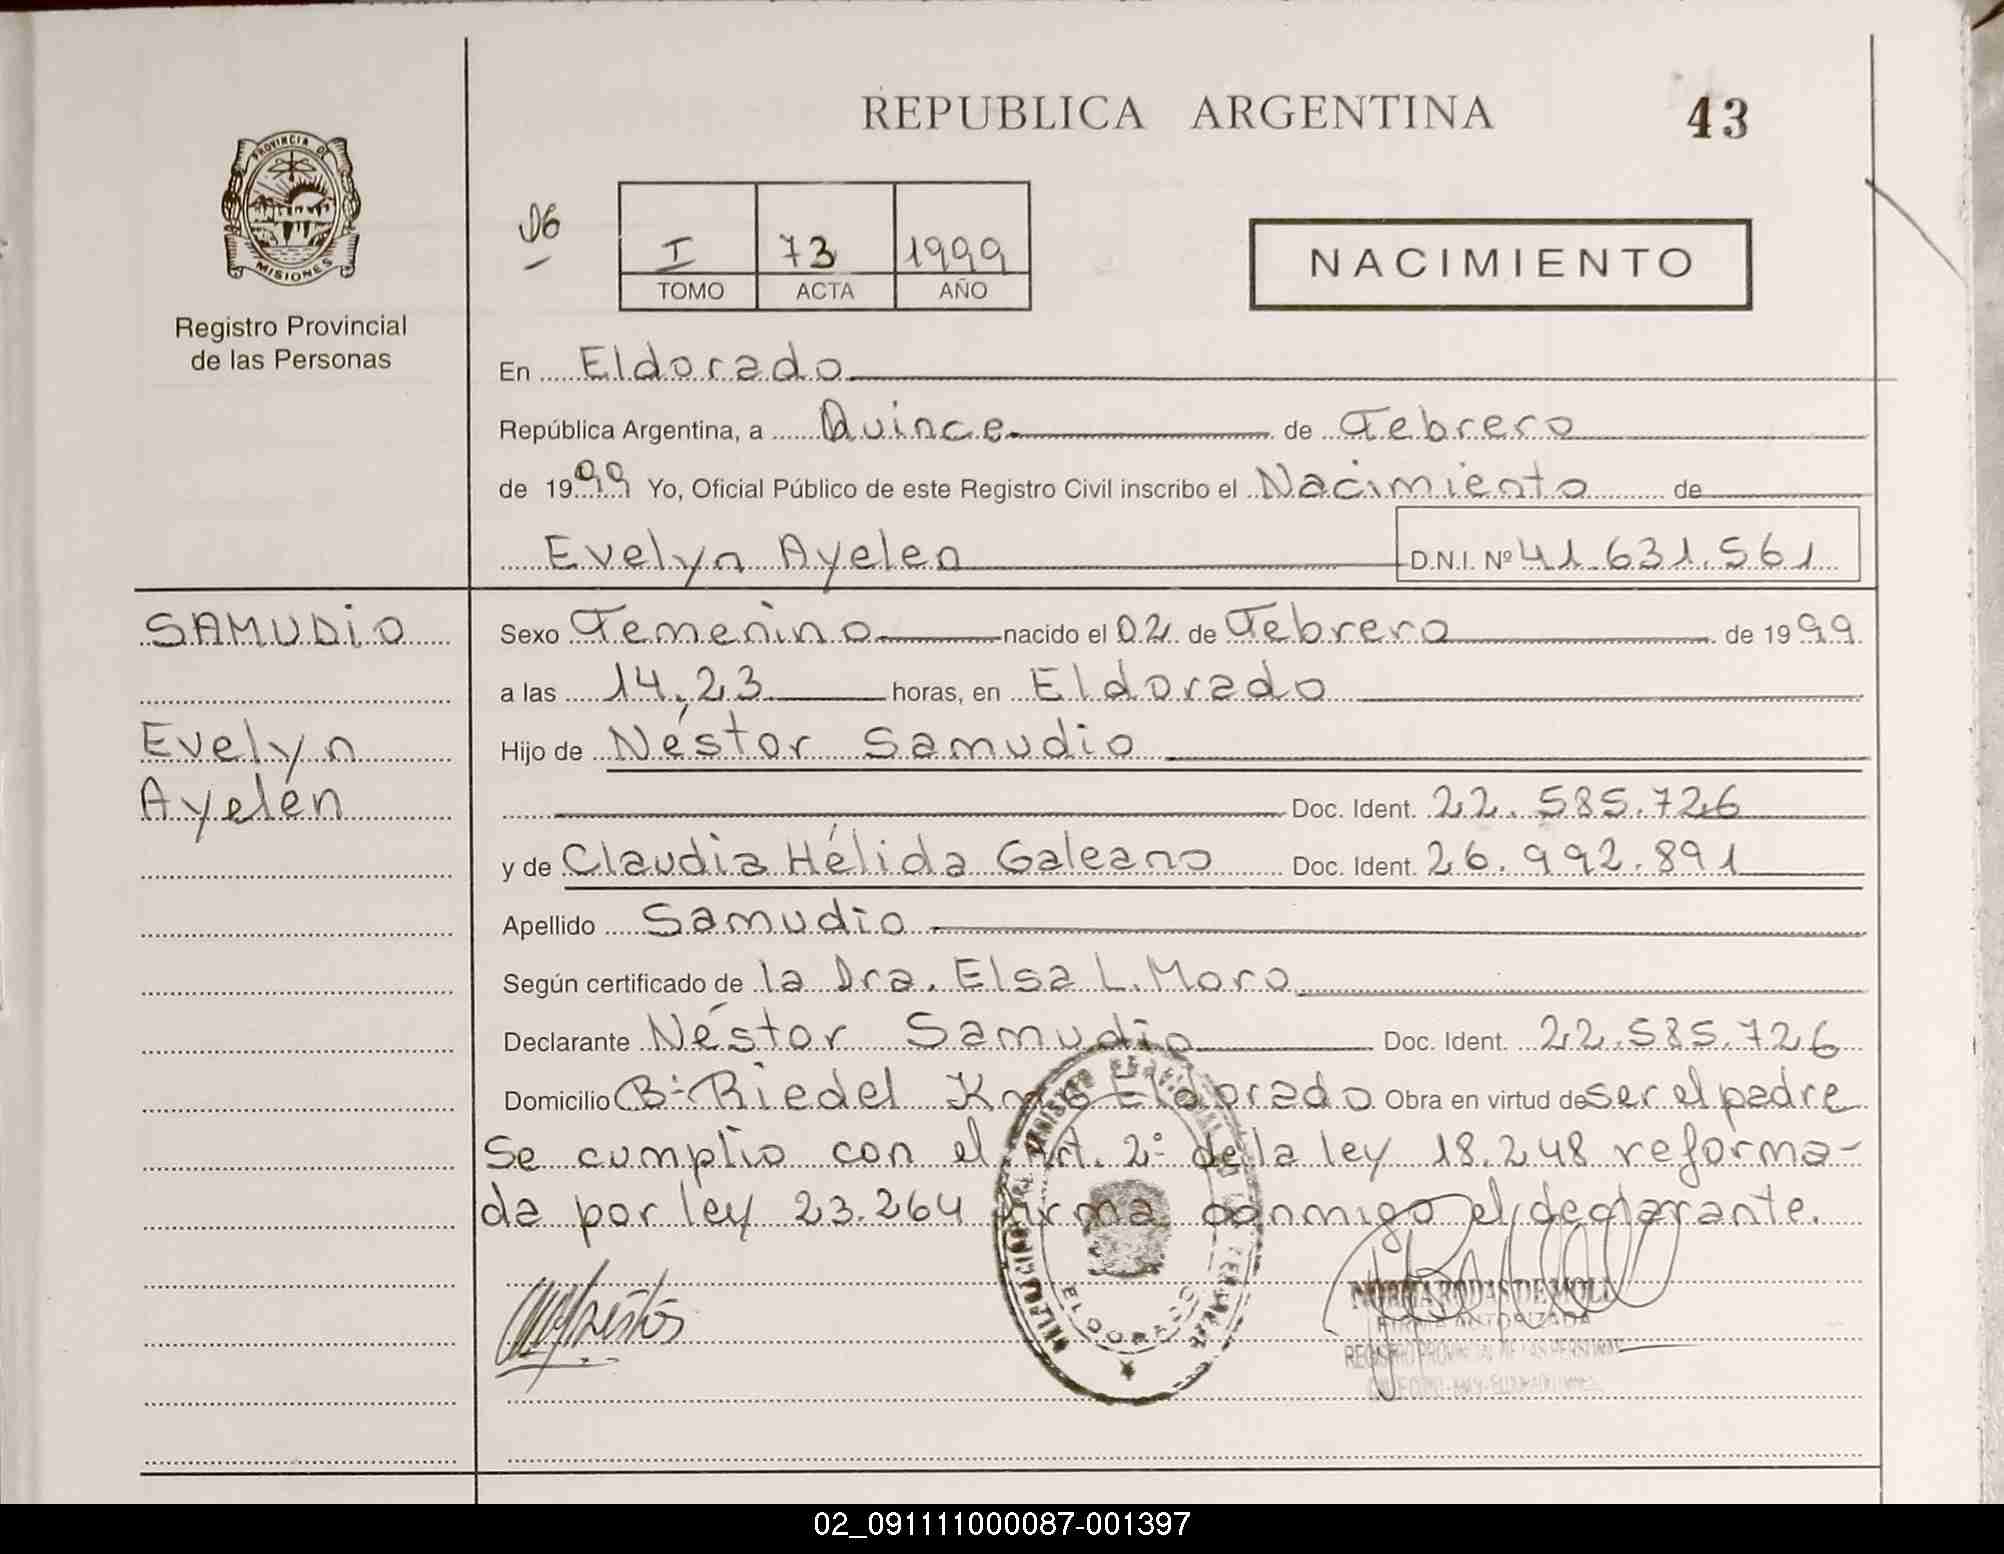 REPUBLICA ARGENTINA
43
PROVINCIA DE
MISIONES
Registro Provincial
de las Personas
06
I 73 1999
TOMO ACTA AÑO
NACIMIENTO
En Eldorado
República Argentina, a Quince de Febrero
de 1999 Yo, Oficial Público de este Registro Civil inscribo el Nacimiento de
Evelyn Ayelen D.N.I. Nº 41.631.561
SAMUDIO
Evelyn
Ayelén
Sexo Femenino nacido el 02 de Febrero de 1999
a las 14,23 horas, en Eldorado
Hijo de Néstor Samudio
Doc. Ident. 22.585.726
y de Claudia Hélida Galeano Doc. Ident. 26.992.891
Apellido Samudio
Según certificado de la Dra. Elsa L. Moro
Declarante Néstor Samudio Doc. Ident. 22.585.726
Domicilio Bº Riedel Km Eldorado Obra en virtud de ser el padre
Se cumplio con el Art. 2º de la ley 18.248 reforma-
da por ley 23.264 firma conmigo el declarante.
ELDORADO
NORMA RODAS DE MOLI
FIRMA AUTORIZADA
REGISTRO PROVINCIAL DE LAS PERSONAS
02_091111000087-001397